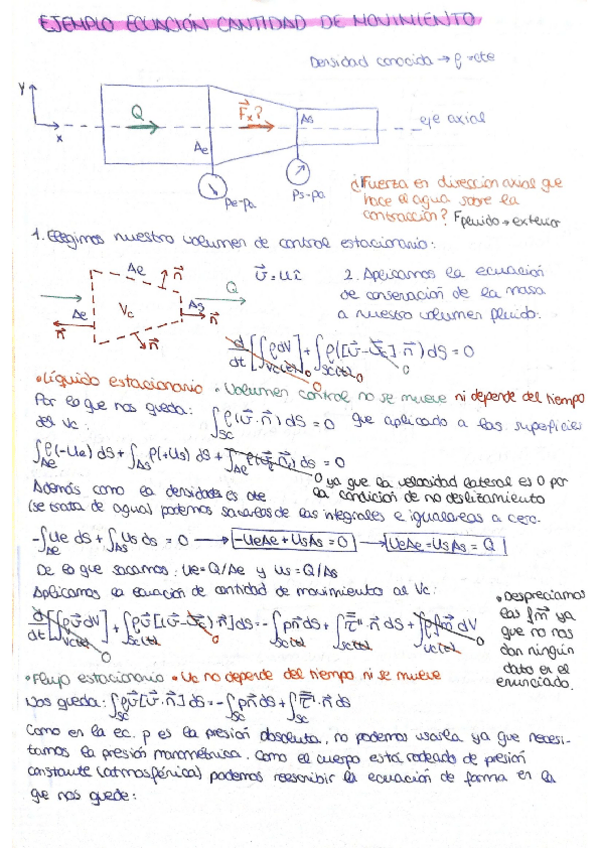 EJEMPLO ECUACIÓN CANTIDAD DE MOVIMIENTO
Densidad conocida → ρ=cte
y
x
Q
Fx?
Ae
As
eje axial
pe-pa
ps-pa
¿Fuerza en dirección axial que
hace el agua sobre la
contracción? Ffluido→exterior
1. Elegimos nuestro volumen de control estacionario:
Ae
n
Q
Ae
Vc
As
n
n
n
v = u i
2. Aplicamos la ecuación
de conservación de la masa
a nuestro volumen fluido:
d/dt [∫Vc(t) ρdV] + ∫Sc(t) ρ([v-vc] n) dS = 0
•Líquido estacionario •Volumen control no se mueve ni depende del tiempo
Por lo que nos queda: ∫SC ρ(v·n) dS = 0 que aplicado a las superficies
del Vc:
∫Ae ρ(-Ue) dS + ∫As ρ(+Us) dS + ∫Ae ρ(v·n) dS = 0
0 ya que la velocidad lateral es 0 por
la condición de no deslizamiento
Además como la densidad es cte
(se trata de agua) podemos sacarlas de las integrales e igualarlas a cero.
-∫Ae Ue dS + ∫As Us dS = 0 → -UeAe + UsAs = 0 → UeAe = UsAs = Q
De lo que sacamos: Ue=Q/Ae y Us=Q/As
Aplicamos la ecuación de cantidad de movimiento al Vc:
•Despreciamos
las fm ya
que no nos
dan ningún
dato en el
enunciado.
d/dt [∫Vc(t) ρv dV] + ∫Sc(t) ρv[(v-vc)·n] dS = -∫Sc(t) pn dS + ∫Sc(t) τ''·n dS + ∫Vc(t) ρfm dV
•Flujo estacionario •Vc no depende del tiempo ni se mueve
Nos queda: ∫SC ρv[v·n] dS = -∫SC pn dS + ∫SC τ''·n dS
Como en la ec. p es la presión absoluta, no podemos usarla ya que necesi-
tamos la presión manométrica. Como el cuerpo está rodeado de presión
constante (atmosférica) podemos reescribir la ecuación de forma en la
que nos quede: